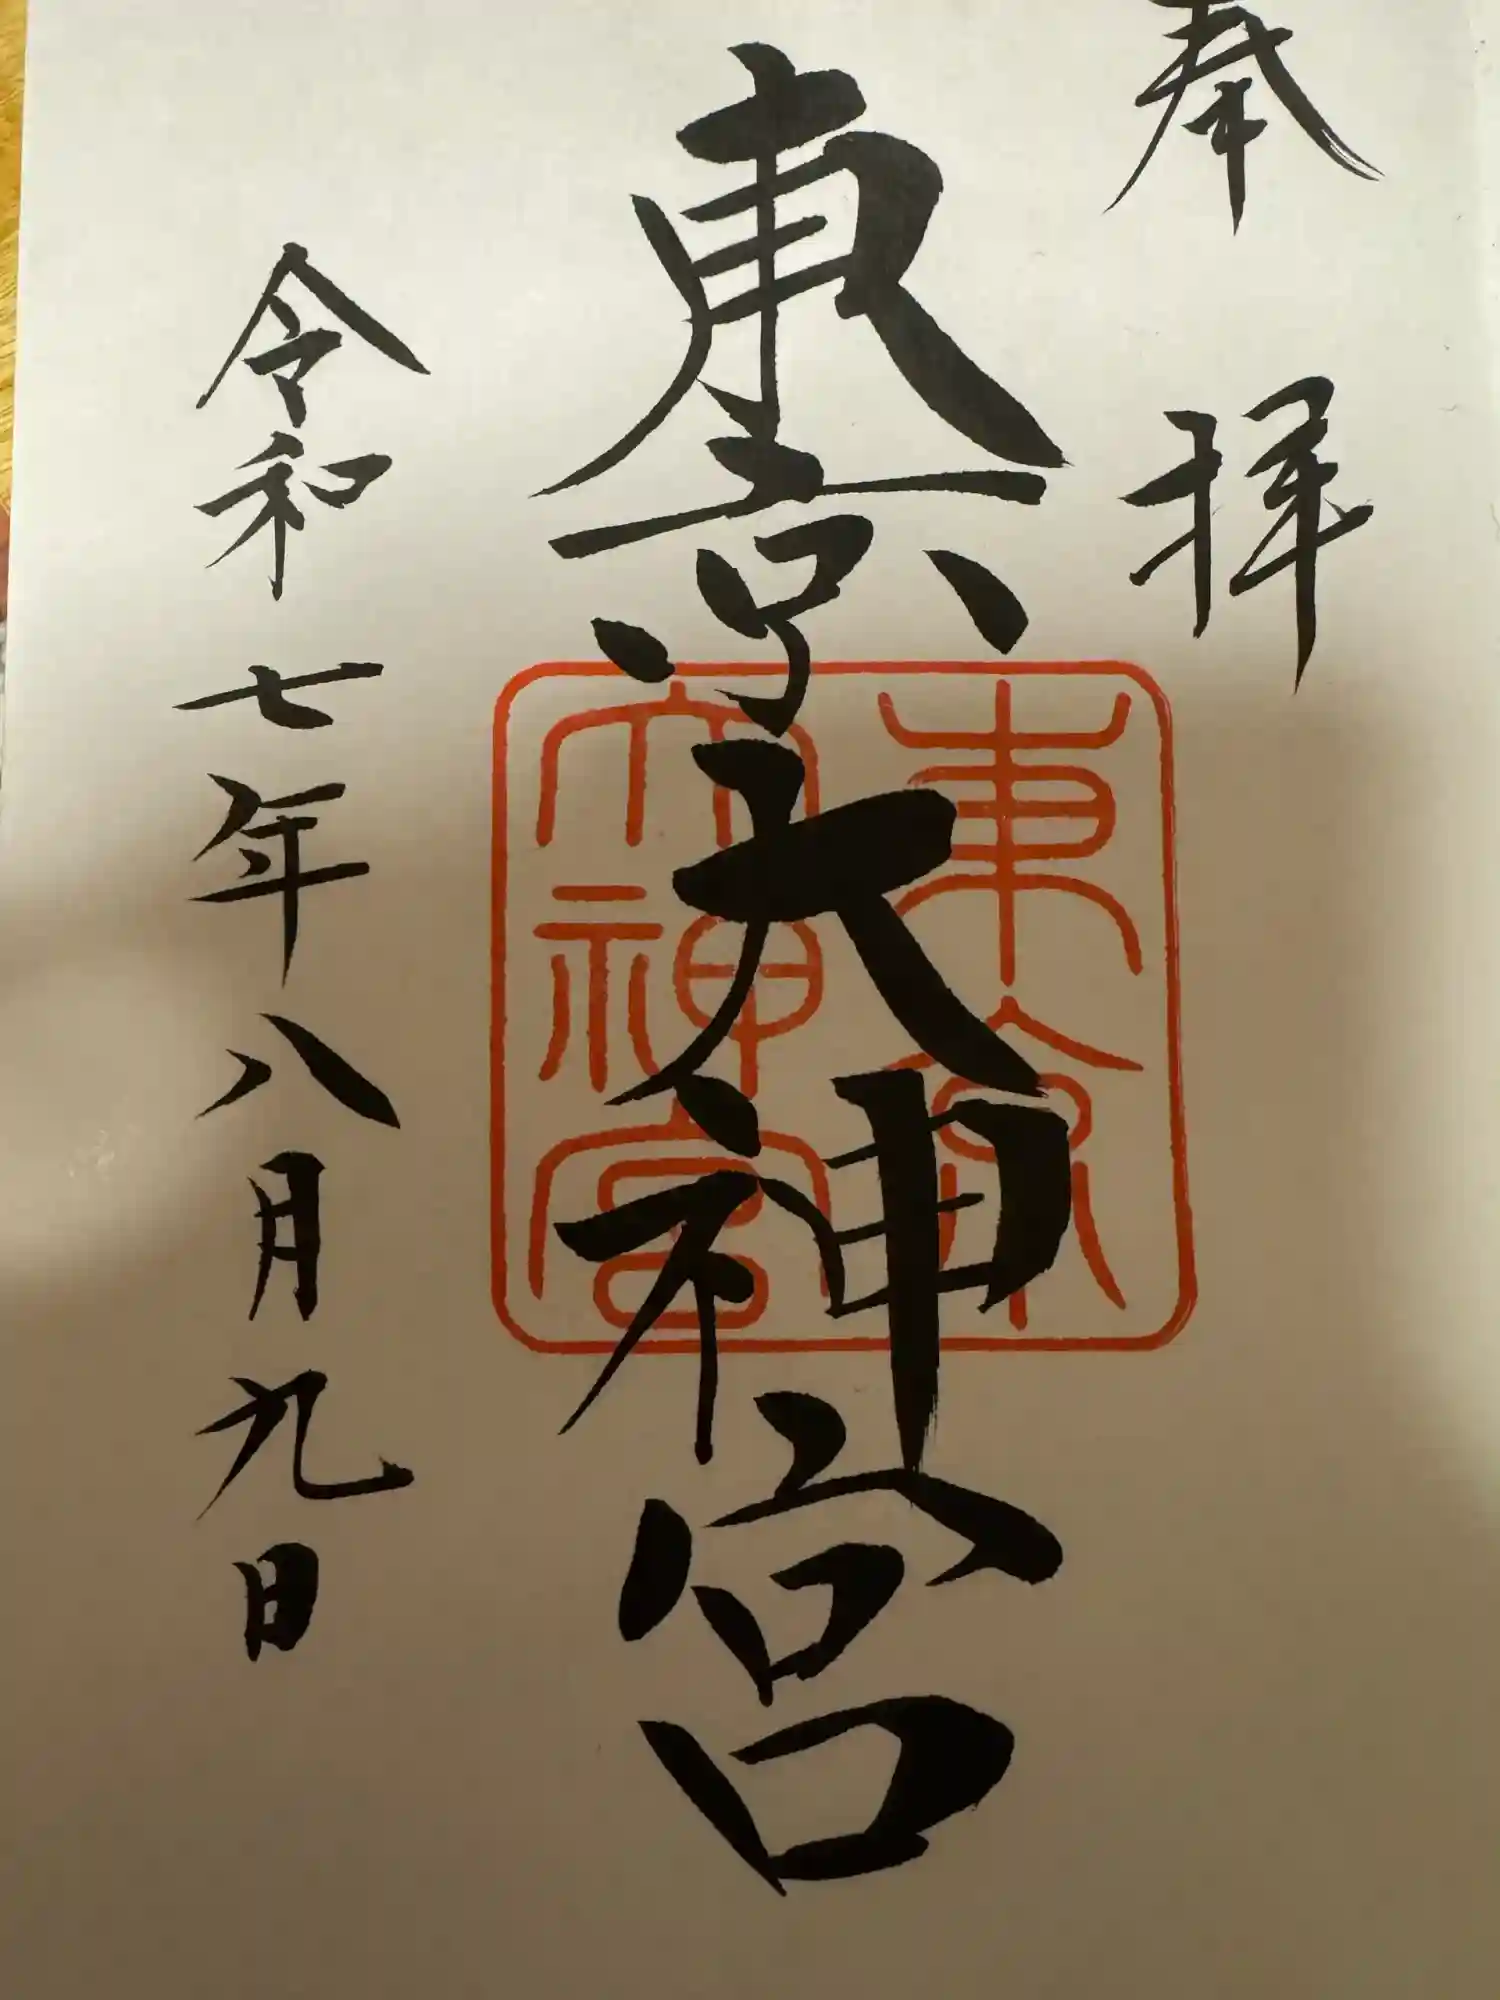 奉拝
東京大神宮
東京
大神宮
令和七年八月九日